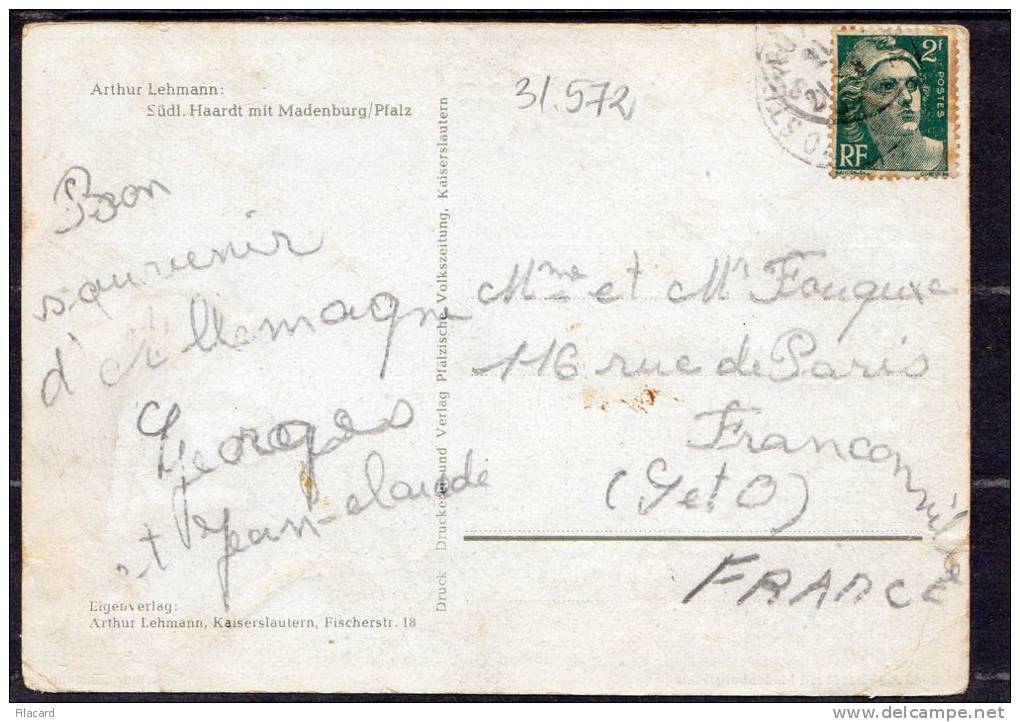 Arthur Lehmann:
Südl. Haardt mit Madenburg/Pfalz
31.572
2F
POSTES
RF
Bon
souvenir
d'Allemagne
Georges
et Jean-claude
Eigenverlag:
Arthur Lehmann, Kaiserslautern, Fischerstr. 18
Druck Druckerei und Verlag Pfälzische Volkszeitung, Kaiserslautern
Mme et Mr Fouquxe
116 rue de Paris
Franconville
(S et O)
FRANCE
Filacard
www.delcampe.net